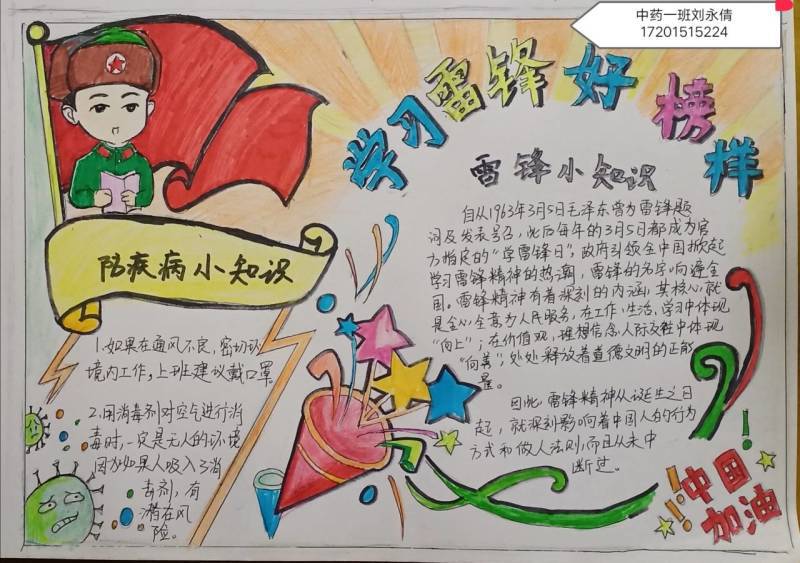 中药一班刘永倩
17201515224
学习雷锋好榜样
雷锋小知识
自从1963年3月5日毛泽东曾为雷锋题
词及发表号召,此后每年的3月5日都成为官
方指定的“学雷锋日”,政府引领全中国掀起
学习雷锋精神的热潮,雷锋的名字响遍全
国,雷锋精神有着深刻的内涵,其核心就
是全心全意为人民服务,在工作,生活,学习中体现
“向上”;在价值观,理想信念人际交往中体现
“向善”;处处释放着道德文明的正能
量。
因此雷锋精神从诞生之日
起,就深刻影响着中国人的行为
方式和做人法则,而且从未中
断过。
防疾病小知识
1.如果在通风不良,密切环
境内工作,上班建议戴口罩
2.用消毒剂对空气进行消
毒时,一定是无人的环境
因为如果人吸入了消
毒剂,有
潜在风
险。
中国
加油